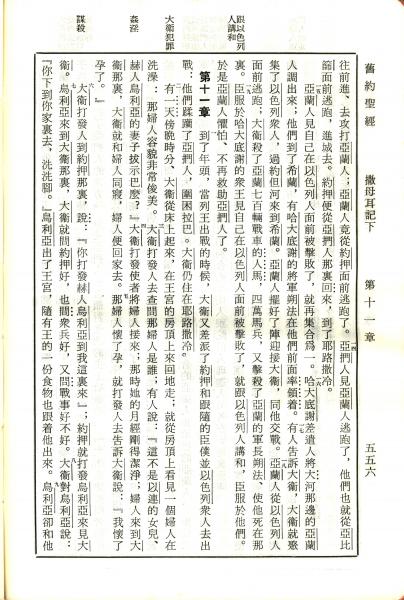 舊約聖經　撒母耳記下　第十一章　五五六
往前進、去攻打亞蘭人；亞蘭人竟從約押面前逃跑了。亞捫人見亞蘭人逃跑了，他們也就從亞比
篩面前逃跑，進城去。約押便從亞捫人那裏回來，到了耶路撒冷。
亞蘭人見自己在以色列人面前被擊敗了，就再集合爲一。哈大底謝差遣人將大河那邊的亞蘭
人調出來；他們到了希蘭，有哈大底謝的將軍朔法在他們前面率領着。有人告訴大衛，大衛就聚
集了以色列衆人，過約但河來到希蘭。亞蘭人擺好了陣迎接大衛，同他交戰。亞蘭人從以色列人
面前逃跑；大衛殺了亞蘭七百輛戰車的人馬，四萬馬兵，又擊殺了亞蘭的軍長朔法、使他死在那
跟以色列人講和
裏。臣服於哈大底謝的衆王見自己在以色列人面前被擊敗了，就跟以色列人講和，臣服於他們。
於是亞蘭人懼怕、不再救助亞捫人了。
第十一章　到了年頭，當列王出戰的時候，大衛又差派了約押和跟隨的臣僕並以色列衆人去出
戰；他們蹂躪了亞捫人，圍困拉巴。大衛仍住在耶路撒冷。
大衛犯罪
有一天傍晚時分、大衛從床上起來，在王宮的房頂上來回地走；就從房頂上看見一個婦人在
洗澡：那婦人容貌非常俊美。大衛打發人去查問那婦人是誰；有人說：『這不是以連的女兒、
姦淫
赫人烏利亞的妻子拔示巴麼？』大衛打發使者將婦人接來；那時她的月經剛得潔淨；婦人來到大
衛那裏，大衛就和婦人同寢，婦人便回家去。那婦人懷了孕，就打發人去告訴大衛說：『我懷了
孕了。』
謀殺
大衛打發人到約押那裏，說：『你打發赫人烏利亞到我這裏來』；約押就打發烏利亞來見大
衛。烏利亞來到大衛那裏，大衛就問約押好，也問衆兵好，又問戰事好不好。大衛對烏利亞說：
『你下到你家裏去，洗洗脚。』烏利亞出了王宮，隨有王的一份食物也跟着他出來。烏利亞卻和他